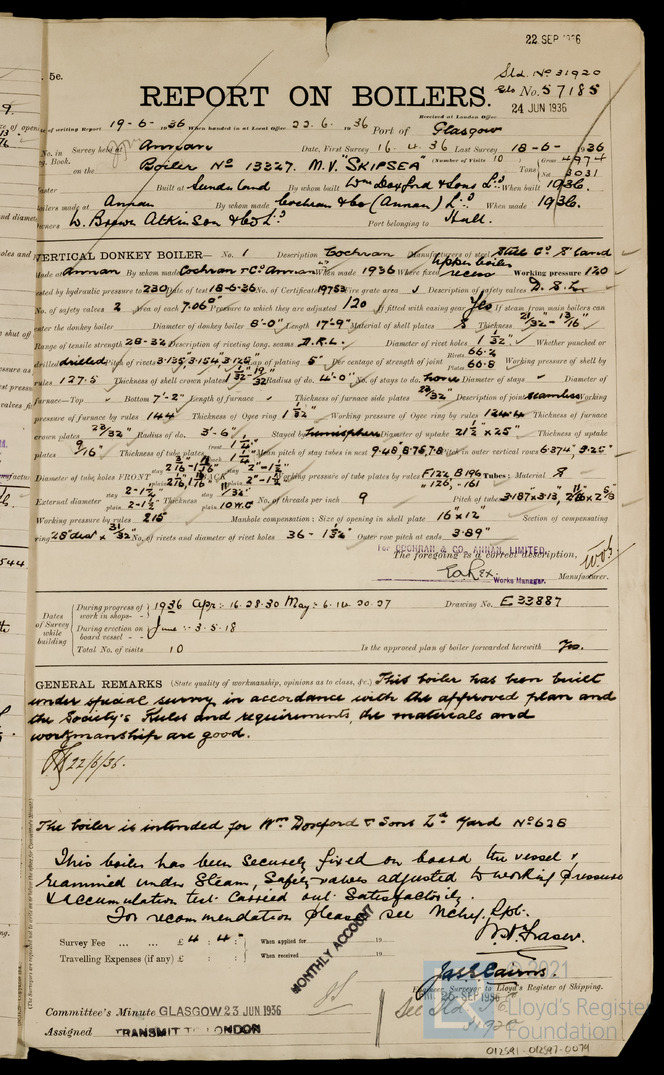 22 SEP 1936
5e.
Sld. No 31920
REPORT ON BOILERS.
Gls No. 57185
24 JUN 1936
Received at London Office
of writing Report 19-6-1936 When handed in at Local Office 22.6.1936 Port of Glasgow
No. in Survey held at Annan Date, First Survey 16.4.36 Last Survey 18-6-1936
Reg. Book. on the Boiler No 13327. M.V. "SKIPSEA" (Number of Visits 10) Tons Gross 4974 Net 3031
Built at Sunderland By whom built Wm Doxford & Sons Ld When built 1936.
Boilers made at Annan By whom made Cochran & Co (Annan) Ld When made 1936.
Owners W. Brown Atkinson & Co Ld Port belonging to Hull.
VERTICAL DONKEY BOILER— No. 1 Description Cochran Manufacturers of steel Steel Co. Scotland
Made at Annan By whom made Cochran & Co Annan Ld When made 1936 Where fixed Upper boiler recess Working pressure 120
tested by hydraulic pressure to 230 Date of test 18-6-36 No. of Certificate 19753 Fire grate area Description of safety valves D.S.L.
No. of safety valves 2 Area of each 7.06" Pressure to which they are adjusted 120 If fitted with easing gear Yes If steam from main boilers can
enter the donkey boiler Diameter of donkey boiler 8'-0" Length 17'-9" Material of shell plates S Thickness 21/32 - 13/16"
Range of tensile strength 28-32 Description of riveting long. seams D.R.L. Diameter of rivet holes 1 1/32" Whether punched or
drilled drilled Pitch of rivets 3.135, 3.154, 3.125 Lap of plating 5" Per centage of strength of joint Rivets 66.2 Plates 66.8 Working pressure of shell by
rules 127.5 Thickness of shell crown plates Radius of do. 4'-0" No. of stays to do. none Diameter of stays Diameter of
furnace—Top Bottom 7'-2" Length of furnace Thickness of furnace side plates 23/32" Description of joint seamless Working
pressure of furnace by rules 144 Thickness of Ogee ring 1 1/32" Working pressure of Ogee ring by rules 124.4 Thickness of furnace
crown plates 23/32" Radius of do. 3'-6" Stayed by hemisphere Diameter of uptake 21 1/2" x 25" Thickness of uptake
plates 9/16" Thickness of tube plates front 1 1/4" back 1 1/4" Mean pitch of stay tubes in nest Pitch in outer vertical rows 6.374" 5.25"
Diameter of tube holes FRONT BACK Working pressure of tube plates by rules F 122, B 196 Tubes: Material S
External diameter stay 2-1/2" plain 2-1/2" Thickness stay 11/32" plain 10 W.G No. of threads per inch 9 Pitch of tubes
Working pressure by rules 215 Manhole compensation: Size of opening in shell plate 16" x 12" Section of compensating
ring No. of rivets and diameter of rivet holes 36 - 1 3/32" Outer row pitch at ends 3.89"
For COCHRAN & CO. ANNAN, LIMITED.
The foregoing is a correct description,
Works Manager. Manufacturer.
Dates of Survey while building
During progress of work in shops - - 1936 Apr: 16.28.30 May: 6.14.20.27 Drawing No. E33887
During erection on board vessel - - June: 3.5.18
Total No. of visits 10 Is the approved plan of boiler forwarded herewith Yes.
GENERAL REMARKS (State quality of workmanship, opinions as to class, &c.) This boiler has been built
under special survey in accordance with the approved plan and
the Society's Rules and requirements, the materials and
workmanship are good.
22/6/36.
The boiler is intended for Wm Doxford & Sons Ld Yard No 628
This boiler has been securely fixed on board the vessel &
examined under steam, Safety valves adjusted to working pressure
& accumulation test carried out satisfactorily.
For recommendation please see Mchy. Rpt.
W. Fraser.
Survey Fee ... ... £ 4 : 4 : When applied for 19
Travelling Expenses (if any) £ : : When received 19
MONTHLY ACCOUNT
Jas. Cairns.
Engineer Surveyor to Lloyd's Register of Shipping.
Committee's Minute GLASGOW 23 JUN 1936
FRI. 25 SEP 1936
See Sld. 31920
Assigned TRANSMIT TO LONDON
© 2021
Lloyd's Register
Foundation
012591-012597-0079